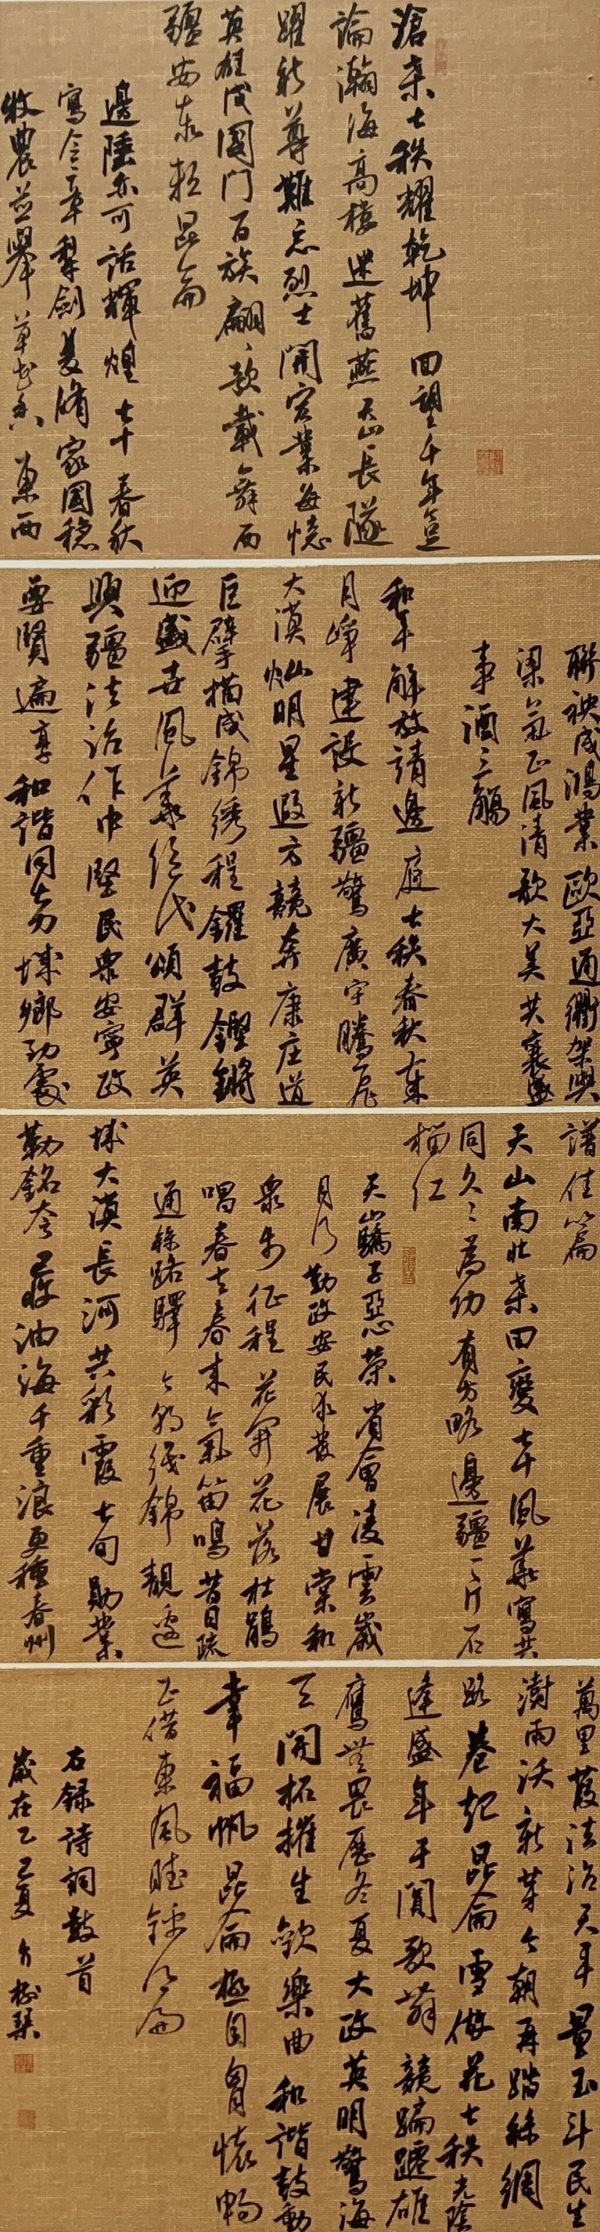 滄桑七秩耀乾坤回望千年豈
論瀚海高樓迷舊燕天山長隧
躍新尊難忘烈士開宏業每憶
英雄戍國門百族翩翩歌載舞西
疆安泰賴昆侖
邊陲亦可話輝煌七十春秋
寫令章犁劍美脩家國穩
牧農並舉草書東西
聯袂成鴻業歐亞通衢架興
梁氣正風清歌大美共襄盛
事酒三觴
和平解放請邊庭七秩春秋
月崢建設新疆驚廣宇騰飛
大漠燦明星遐方競奔康莊道
巨擘描成錦綉程鑼鼓鏗鏘
迎盛世風華絕代頌群英
興疆法治作中堅民眾安寧政
要賢遍享和諧同城鄉
譜佳篇
天山南北桑田變七十風華寫共
同久久為功有方略邊疆一片石
榴紅
天山驕子惡榮省會凌雲歲
月勤政安民發展甘棠和
眾步征程花開花落杜鵑
唱春去春來氣笛鳴昔日疏
通絲路驛今線錦靚邊
城大漠長河共彩霞七旬勛業
勒銘油海千重浪更種春州
萬里葭法治天平量玉斗民生
澍雨沃新芽今朝再踏絲綢
路卷起昆侖雪做花七秩光陰
逢盛年于闐歌舞競蹁躚雄
鷹無畏歷冬夏大政英明驚海
天開拓摧生歡樂曲和諧鼓動
幸福帆昆侖極目胃懷暢
正借東風
右錄詩詞數首
歲在乙巳夏